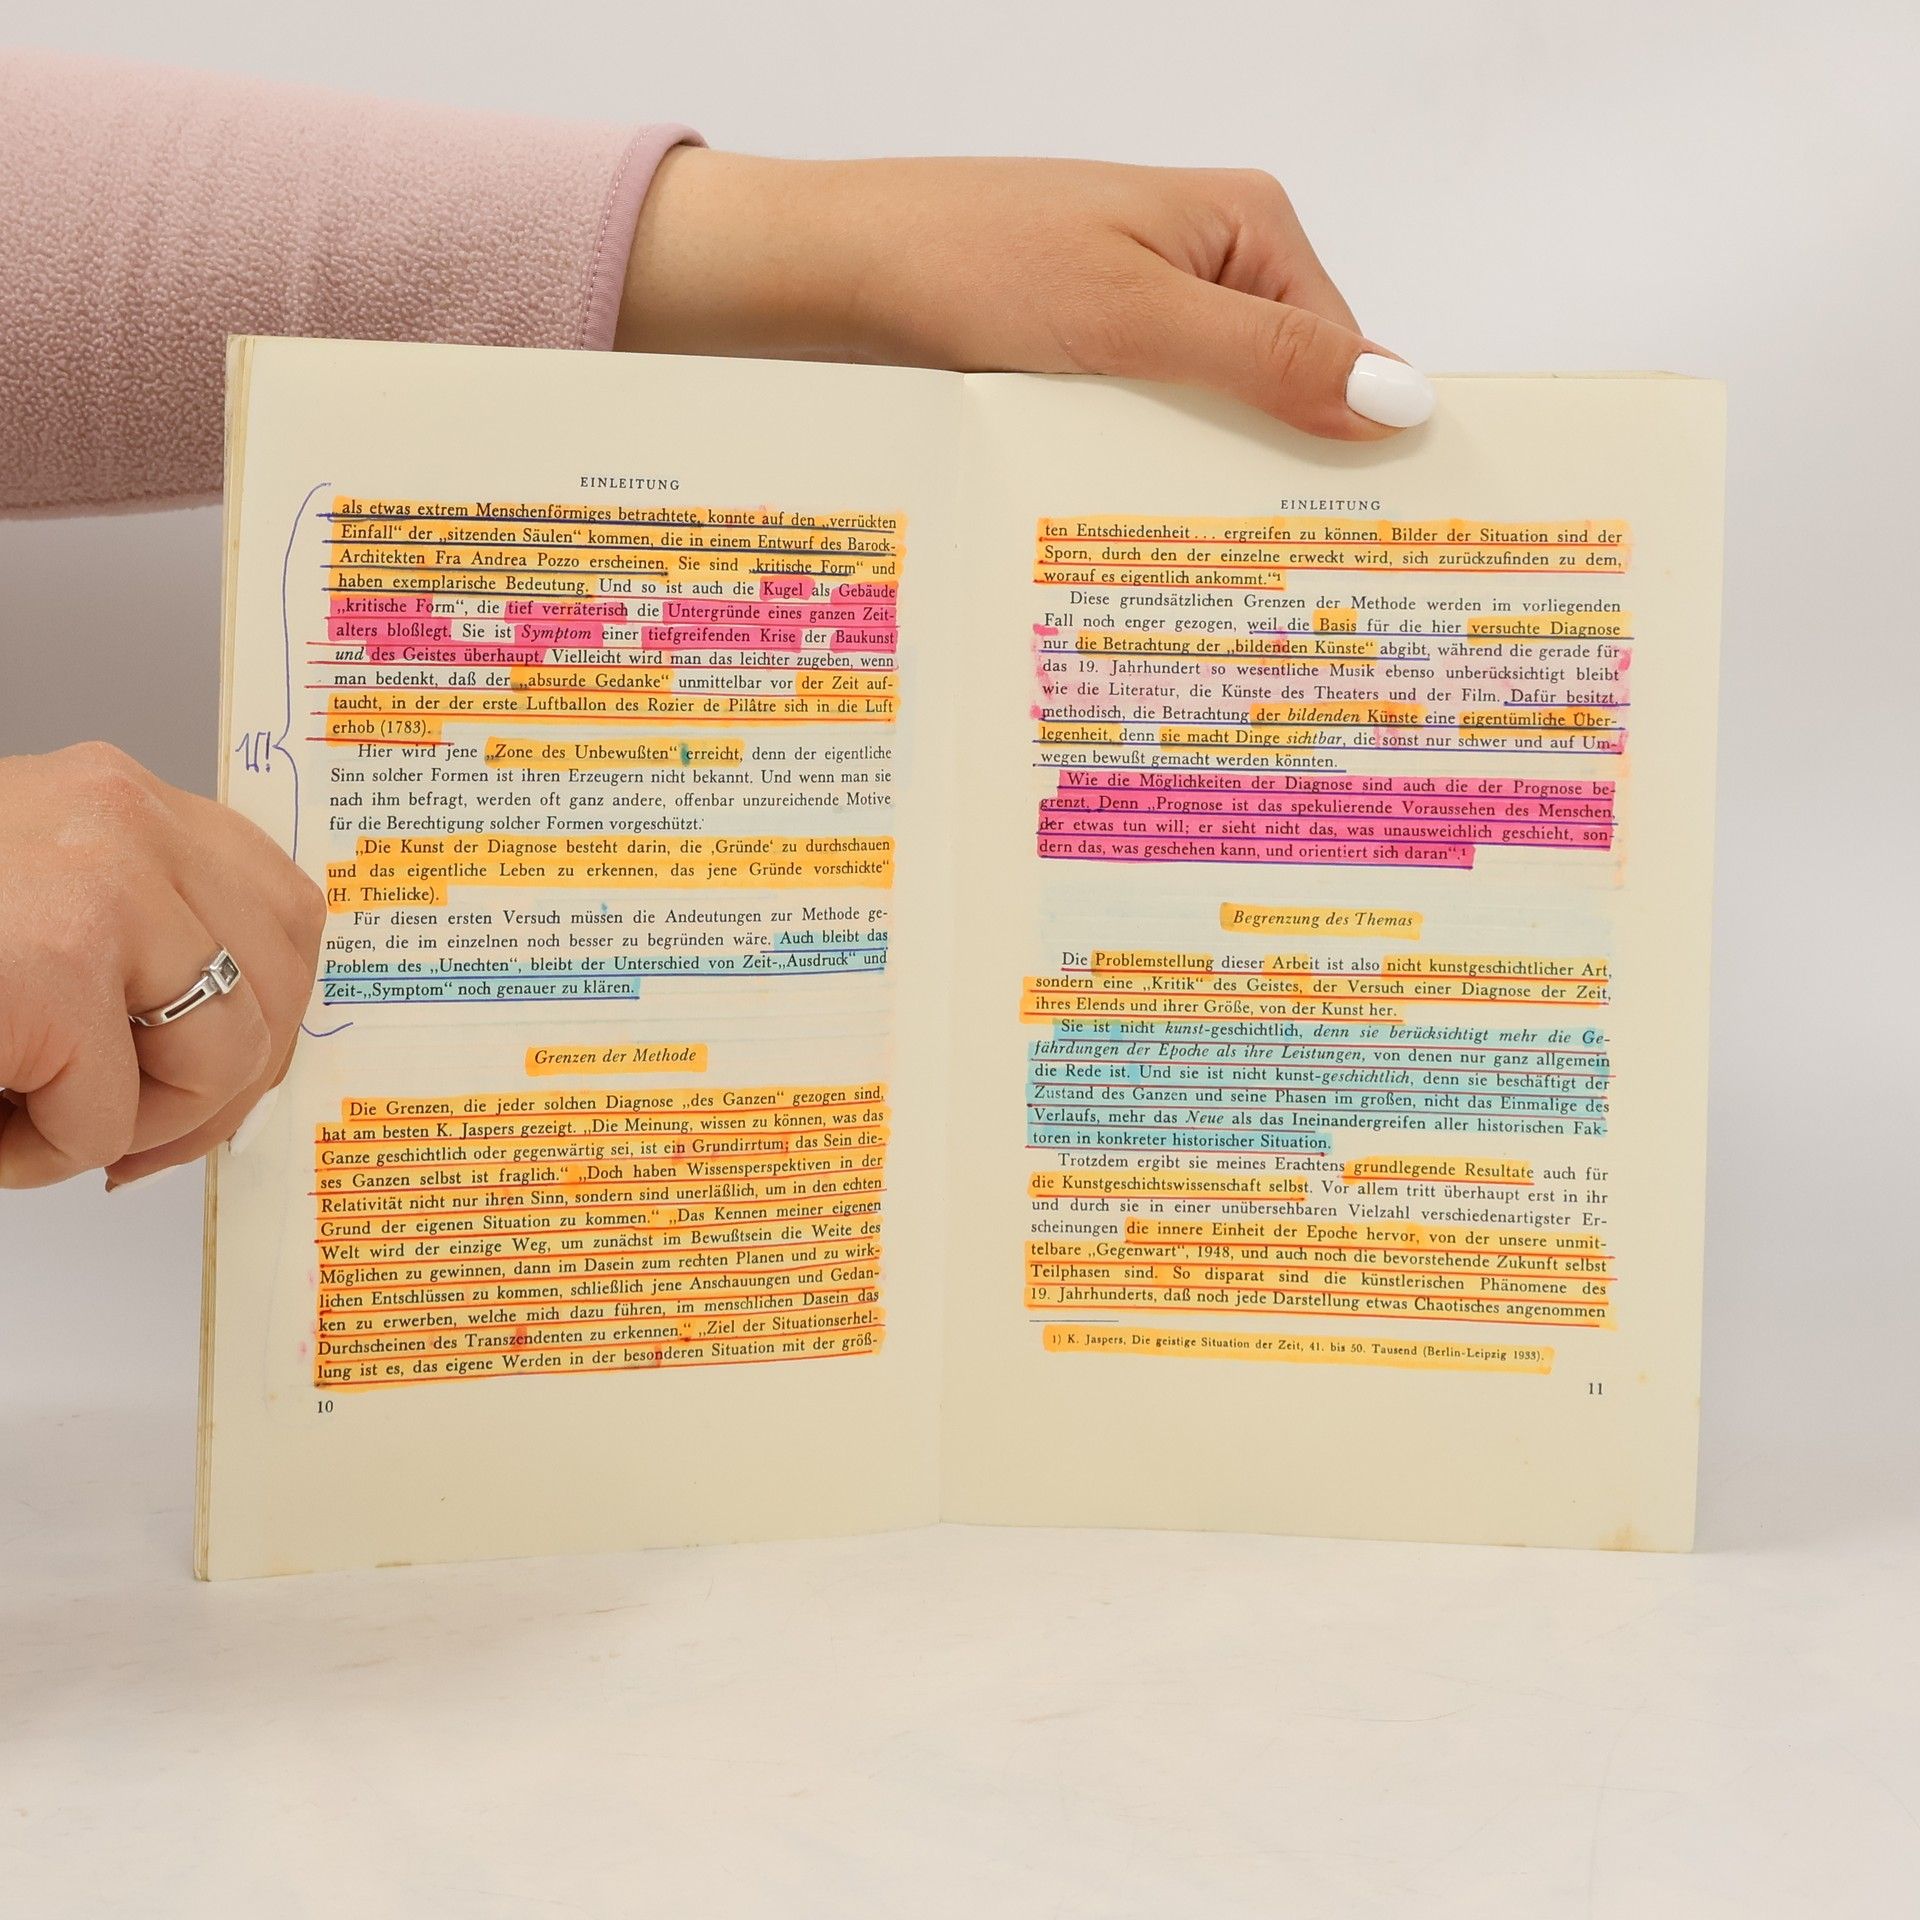 EINLEITUNG
als etwas extrem Menschenförmiges betrachtete, konnte auf den „verrückten
Einfall“ der „sitzenden Säulen“ kommen, die in einem Entwurf des Barock-
Architekten Fra Andrea Pozzo erscheinen. Sie sind „kritische Form“ und
haben exemplarische Bedeutung. Und so ist auch die Kugel als Gebäude
„kritische Form“, die tief verräterisch die Untergründe eines ganzen Zeit-
alters bloßlegt. Sie ist Symptom einer tiefgreifenden Krise der Baukunst
und des Geistes überhaupt. Vielleicht wird man das leichter zugeben, wenn
man bedenkt, daß der „absurde Gedanke“ unmittelbar vor der Zeit auf-
taucht, in der der erste Luftballon des Rozier de Pilâtre sich in die Luft
erhob (1783).
Hier wird jene „Zone des Unbewußten“ erreicht, denn der eigentliche
Sinn solcher Formen ist ihren Erzeugern nicht bekannt. Und wenn man sie
nach ihm befragt, werden oft ganz andere, offenbar unzureichende Motive
für die Berechtigung solcher Formen vorgeschützt.
„Die Kunst der Diagnose besteht darin, die ‚Gründe‘ zu durchschauen
und das eigentliche Leben zu erkennen, das jene Gründe vorschickte“
(H. Thielicke).
Für diesen ersten Versuch müssen die Andeutungen zur Methode ge-
nügen, die im einzelnen noch besser zu begründen wäre. Auch bleibt das
Problem des „Unechten“, bleibt der Unterschied von Zeit-„Ausdruck“ und
Zeit-„Symptom“ noch genauer zu klären.
Grenzen der Methode
Die Grenzen, die jeder solchen Diagnose „des Ganzen“ gezogen sind,
hat am besten K. Jaspers gezeigt. „Die Meinung, wissen zu können, was das
Ganze geschichtlich oder gegenwärtig sei, ist ein Grundirrtum; das Sein die-
ses Ganzen selbst ist fraglich.“ „Doch haben Wissensperspektiven in der
Relativität nicht nur ihren Sinn, sondern sind unerläßlich, um in den echten
Grund der eigenen Situation zu kommen.“ „Das Kennen meiner eigenen
Welt wird der einzige Weg, um zunächst im Bewußtsein die Weite des
Möglichen zu gewinnen, dann im Dasein zum rechten Planen und zu wirk-
lichen Entschlüssen zu kommen, schließlich jene Anschauungen und Gedan-
ken zu erwerben, welche mich dazu führen, im menschlichen Dasein das
Durchscheinen des Transzendenten zu erkennen.“ „Ziel der Situationserhel-
lung ist es, das eigene Werden in der besonderen Situation mit der größ-
10
EINLEITUNG
ten Entschiedenheit... ergreifen zu können. Bilder der Situation sind der
Sporn, durch den der einzelne erweckt wird, sich zurückzufinden zu dem,
worauf es eigentlich ankommt.“¹
Diese grundsätzlichen Grenzen der Methode werden im vorliegenden
Fall noch enger gezogen, weil die Basis für die hier versuchte Diagnose
nur die Betrachtung der „bildenden Künste“ abgibt, während die gerade für
das 19. Jahrhundert so wesentliche Musik ebenso unberücksichtigt bleibt
wie die Literatur, die Künste des Theaters und der Film. Dafür besitzt,
methodisch, die Betrachtung der bildenden Künste eine eigentümliche Über-
legenheit, denn sie macht Dinge sichtbar, die sonst nur schwer und auf Um-
wegen bewußt gemacht werden könnten.
Wie die Möglichkeiten der Diagnose sind auch die der Prognose be-
grenzt. Denn „Prognose ist das spekulierende Voraussehen des Menschen,
der etwas tun will; er sieht nicht das, was unausweichlich geschieht, son-
dern das, was geschehen kann, und orientiert sich daran“.¹
Begrenzung des Themas
Die Problemstellung dieser Arbeit ist also nicht kunstgeschichtlicher Art,
sondern eine „Kritik“ des Geistes, der Versuch einer Diagnose der Zeit,
ihres Elends und ihrer Größe, von der Kunst her.
Sie ist nicht kunst-geschichtlich, denn sie berücksichtigt mehr die Ge-
fährdungen der Epoche als ihre Leistungen, von denen nur ganz allgemein
die Rede ist. Und sie ist nicht kunst-geschichtlich, denn sie beschäftigt der
Zustand des Ganzen und seine Phasen im großen, nicht das Einmalige des
Verlaufs, mehr das Neue als das Ineinandergreifen aller historischen Fak-
toren in konkreter historischer Situation.
Trotzdem ergibt sie meines Erachtens grundlegende Resultate auch für
die Kunstgeschichtswissenschaft selbst. Vor allem tritt überhaupt erst in ihr
und durch sie in einer unübersehbaren Vielzahl verschiedenartigster Er-
scheinungen die innere Einheit der Epoche hervor, von der unsere unmit-
telbare „Gegenwart“, 1948, und auch noch die bevorstehende Zukunft selbst
Teilphasen sind. So disparat sind die künstlerischen Phänomene des
19. Jahrhunderts, daß noch jede Darstellung etwas Chaotisches angenommen
1) K. Jaspers, Die geistige Situation der Zeit, 41. bis 50. Tausend (Berlin-Leipzig 1933).
11